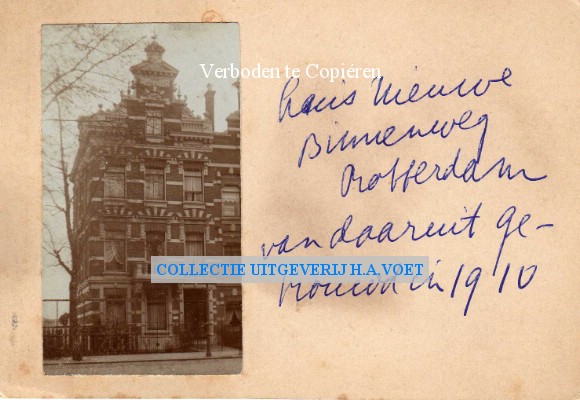 Verboden te Copiéren
huis Nieuwe
Binnenweg
Rotterdam
van daaruit ge-
COLLECTIE UITGEVERIJ H.A.VOET
trouwd in 1910